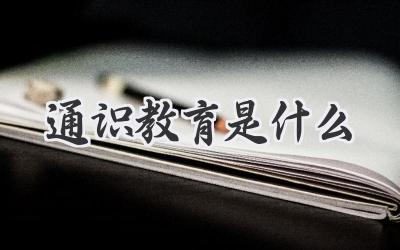 通识教育是什么